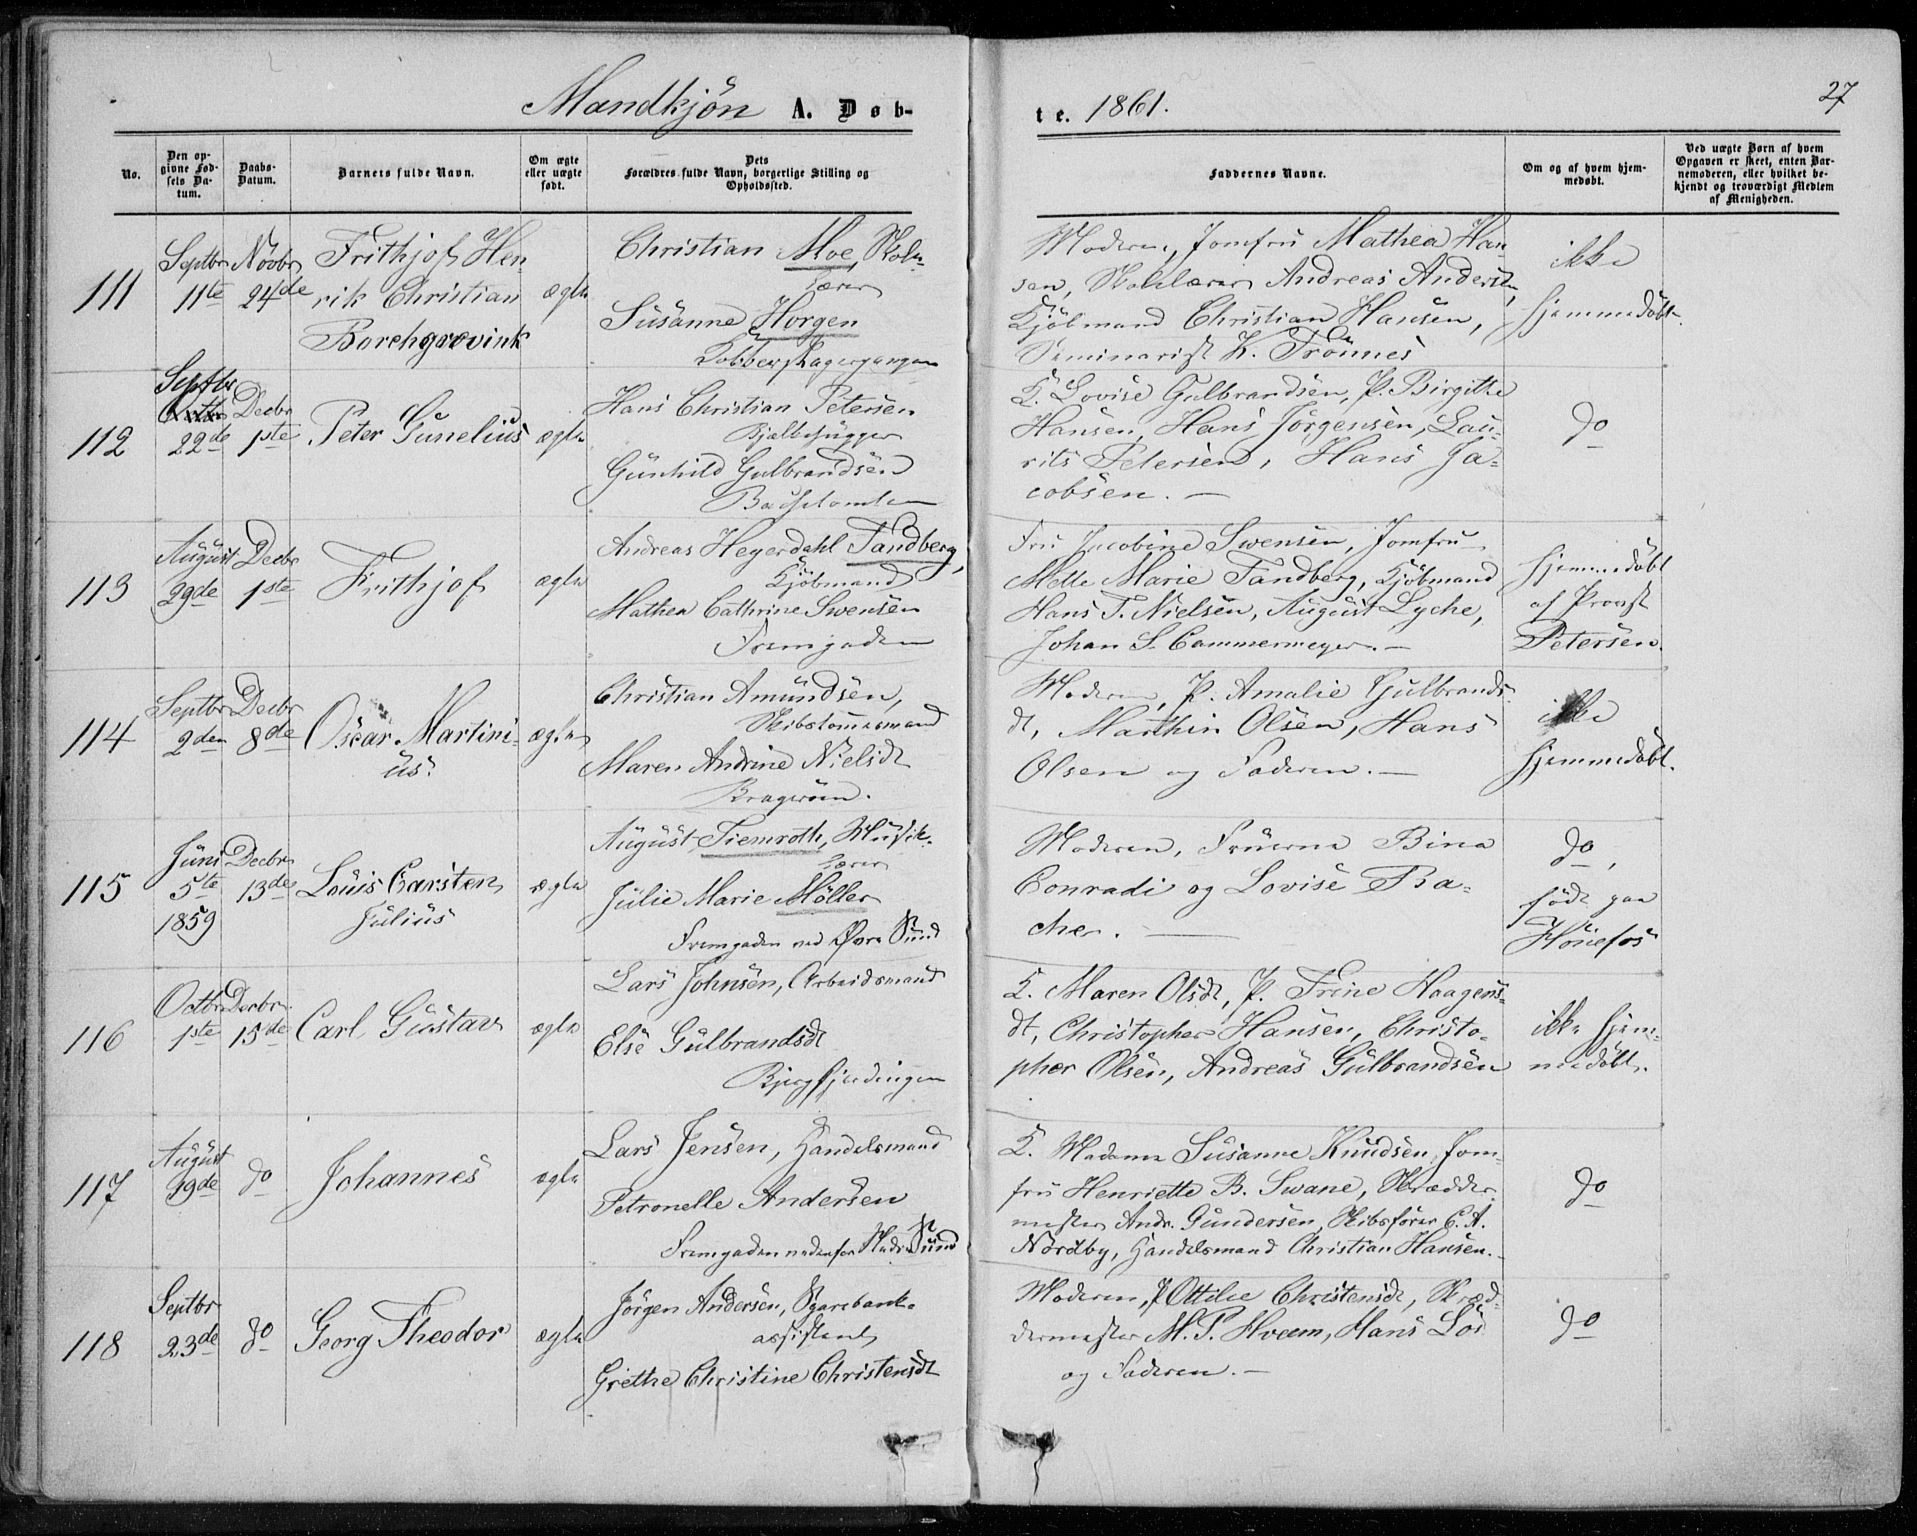 Mandkjøn A. Døb-
te. 1861.
27
No.
Den op-
givne Fød-
sels Da-
tum.
Daabs-
Datum.
Barnets fulde Navn.
Om ægte
eller uægte
født.
Dets
Forældres fulde Navn, borgerlige Stilling og
Opholdssted.
Faddernes Navne.
Om og af hvem hjem-
medøbt.
Ved uægte Børn af hvem
Opgaven er skeet, enten Bar-
nemoderen, eller hvilket be-
kjendt og troværdigt Medlem
af Menigheden.
111
Septbr
11te
Novbr
24de
Frithjof Hen-
rik Christian
Borchgrevink
ægte
Christian Moe, Skole-
lærer
Susanne Horgen
Moderen, Jomfru Mathea Han-
sen, Skolelærer Andreas Andersen,
Kjöbmand Christian Hansen,
Seminarist K. Trönnes
ikke
hjemmedöbt.
112
Septbr
22de
Decbr
1ste
Peter Gunelius
ægte
Hans Christian Petersen
Bjælkehugger
Gunhild Gulbrandsen
K. Lovise Gulbrandsen, P. Birgitte
Hansen, Hans Jörgensen, Lau-
rits Petersen, Hans Ja-
cobsen. —
do
113
August
29de
Decbr
1ste
Frithjof
ægte
Andreas Heyerdahl Tandberg,
Kjöbmand
Mathea Cathrine Swensen
Fremgaden
Fru Jacobine Swensen, Jomfru
Mette Marie Tandberg, Kjöbmand
Hans T. Nielsen, August Lyche,
Johan S. Cammermeyer. —
hjemmedöbt
af Provst
Petersen.
114
Septbr
2den
Decbr
8de
Oscar Martini-
us.
ægte
Christian Amundsen,
Skibstömmermand
Maren Andrine Nielsdt
Bragerøen.
Moderen, P. Amalie Gulbrands-
dt, Marthin Olsen, Hans
Olsen og Faderen. —
ikke
hjemmedöbt.
115
Juni
5te
1859
Decbr
13de
Louis Carsten
Julius
ægte
August Tiemroth, Musik-
lærer
Julie Marie Möller
Fremgaden ved Øvre Sund
Moderen, Fruerne Bina
Conradi og Lovise Ba-
cher. —
do,
född paa
Hönefos
116
Octbr
1ste
Decbr
15de
Carl Gustav
ægte
Lars Johnsen, Arbeidsmand
Else Gulbrandsdt
Bjergfjerdingen
K. Maren Olsdt, P. Trine Haagens-
dt, Christopher Hansen, Christo-
pher Olsen, Andreas Gulbrandsen
ikke hjem-
medöbt.
117
August
19de
do
Johannes
ægte
Lars Jensen, Handelsmand
Petronelle Andersen
Fremgaden nedenfor Nedre Sund
K. Madame Susanne Knudsen, Jom-
fru Henriette B. Swane, Skrædder-
mester Andr. Gundersen, Skibsförer C. A.
Nordby, Handelsmand Christian Hansen.
do
118
Septbr
23de
do
Georg Theodor
ægte
Jörgen Andersen, Sparebank-
assistent,
Grethe Christine Christensdt
Moderen, P. Ottilie Christensdt, Skræd-
dermester M. P. Hveem, Hans Löd
og Faderen. —
do